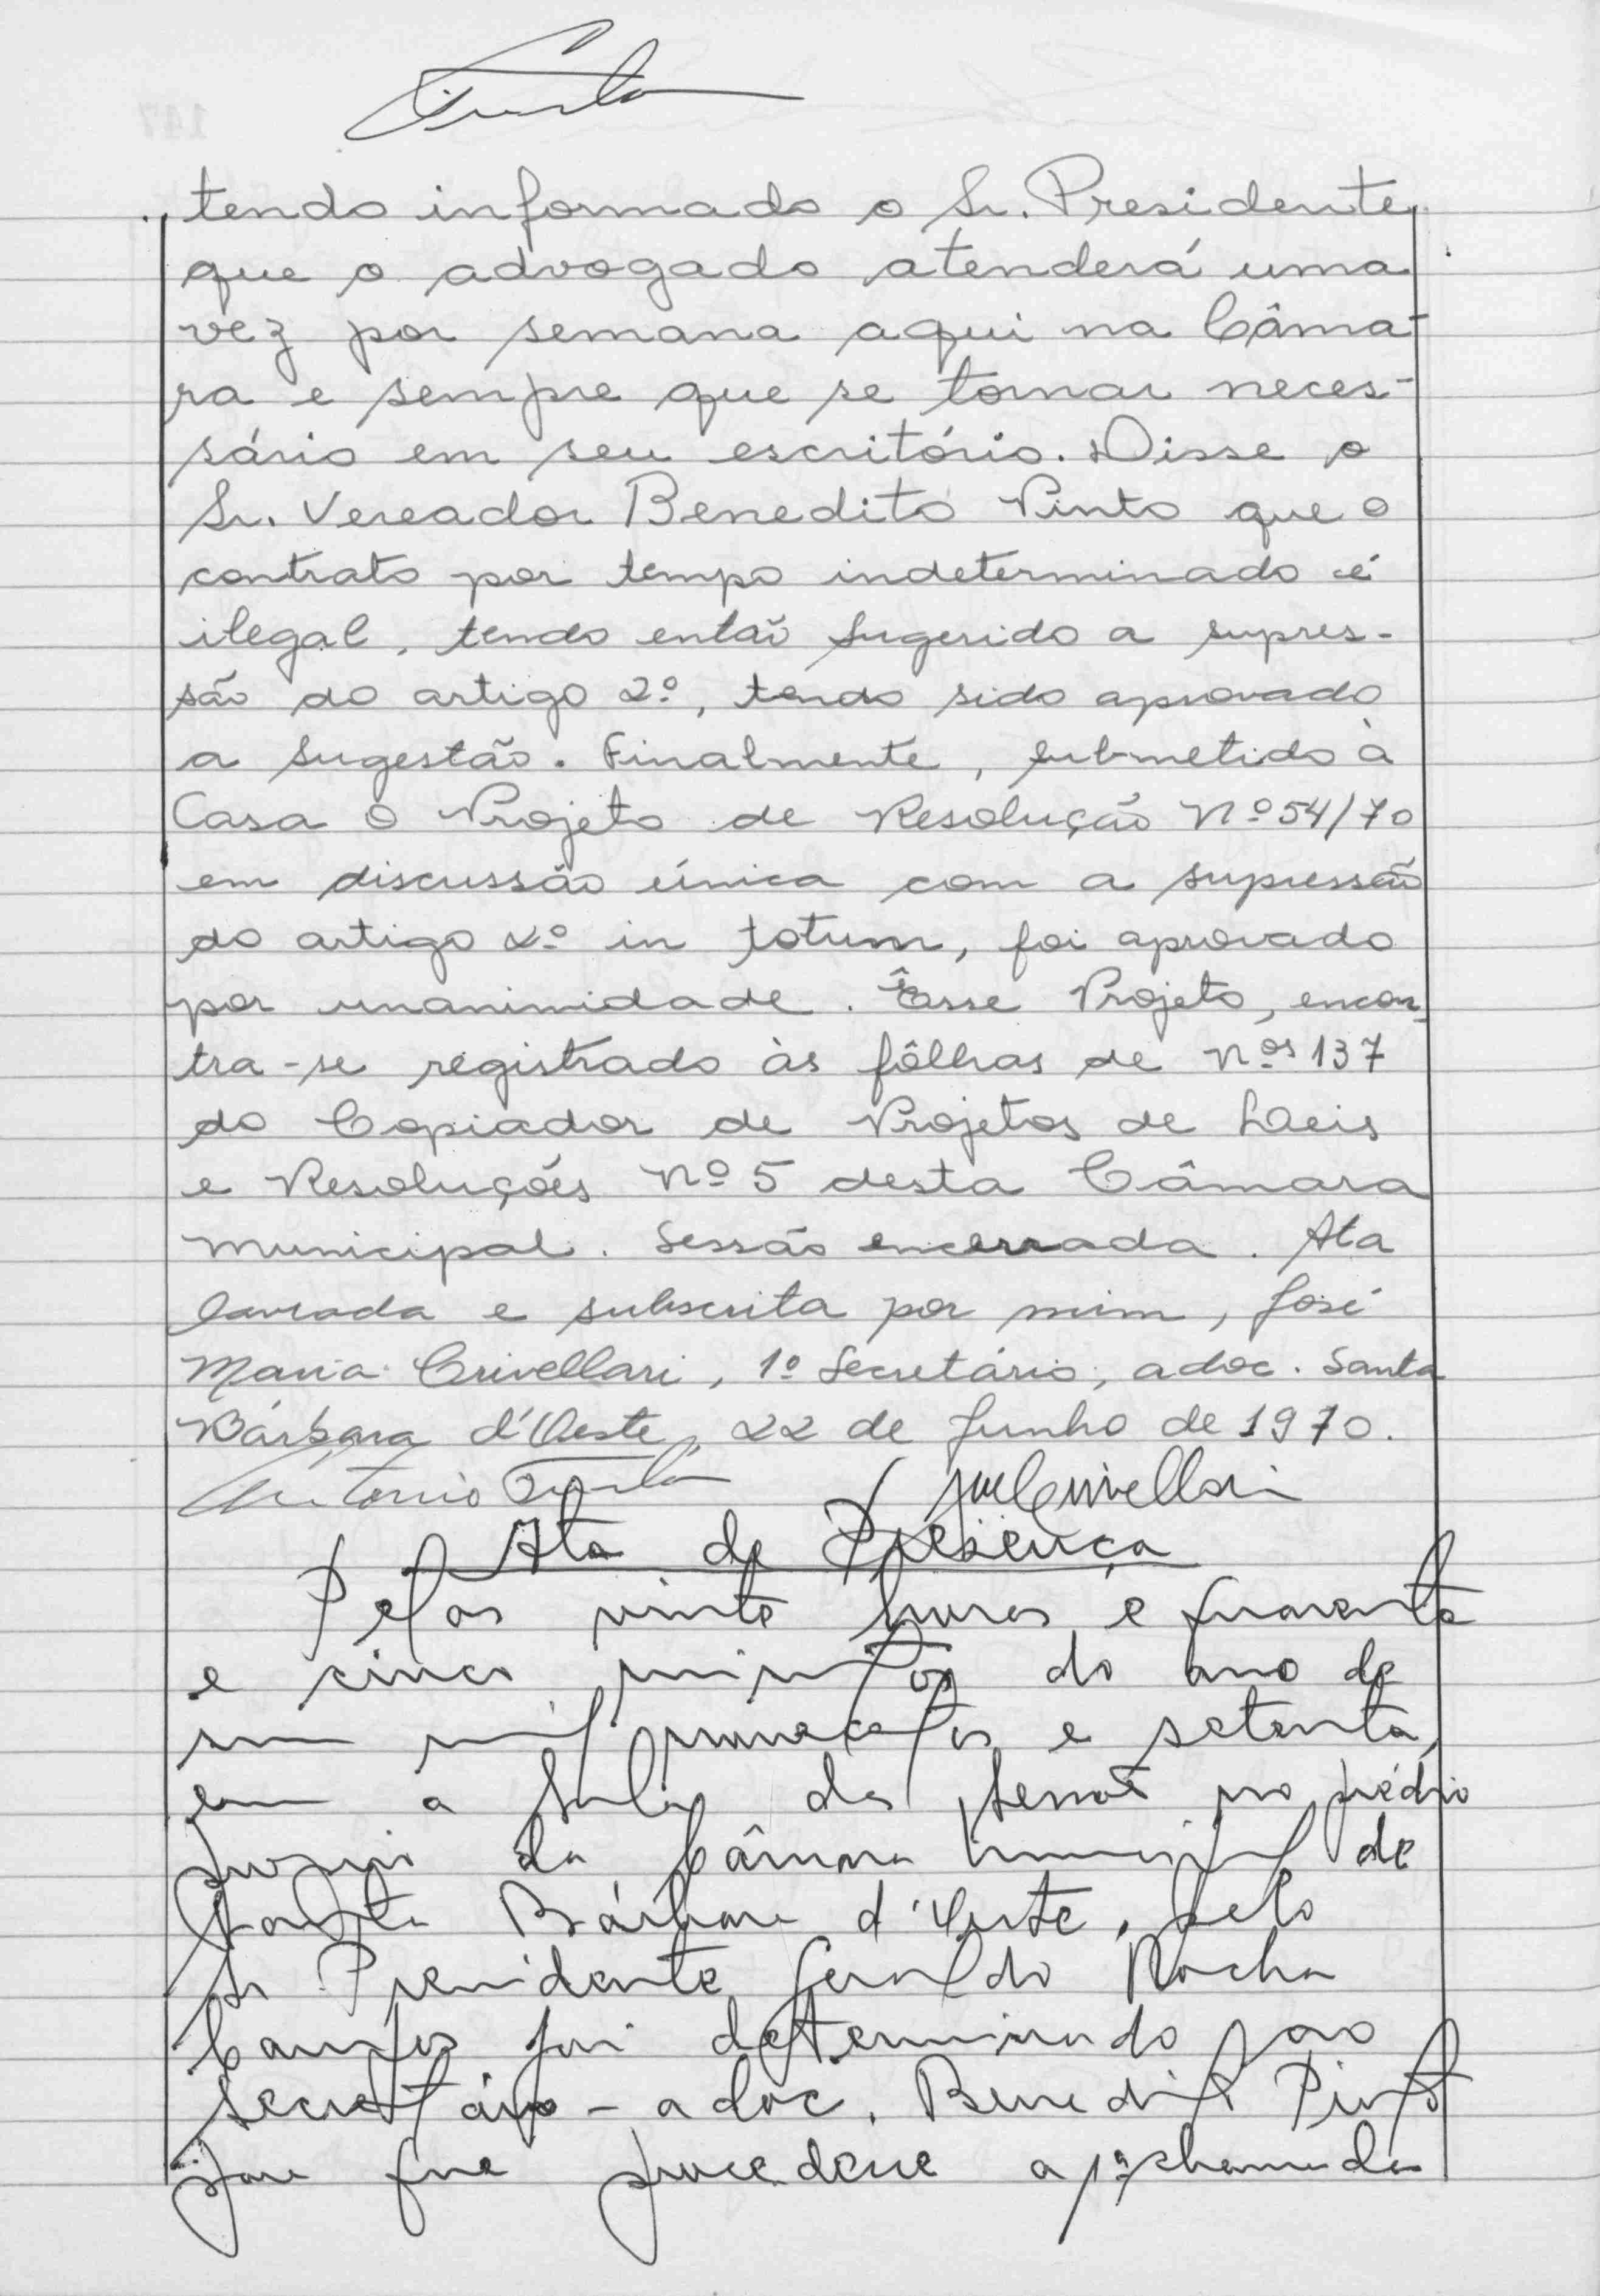 tendo informado o Sr. Presidente
que o advogado atenderá uma
vez por semana aqui na Câma-
ra e sempre que se tornar neces-
sário em seu escritório. Disse o
Sr. Vereador Benedito Pinto que o
contrato por tempo indeterminado é
ilegal, tendo então sugerido a supres-
são do artigo 2º, tendo sido aprovado
a sugestão. Finalmente, submetido à
Casa o Projeto de Resolução Nº 54/70
em discussão única com a supressão
do artigo 2º in totum, foi aprovado
por unanimidade. Êsse Projeto, encon-
tra-se registrado às fôlhas de Nºs 137
do Copiador de Projetos de Leis
e Resoluções Nº 5 desta Câmara
Municipal. Sessão encerrada. Ata
lavrada e subscrita por mim, José
Maria Crivellari, 1º Secretário, adoc. Santa
Bárbara d'Oeste, 22 de Junho de 1970.
Antonio Crivellari
Ata de Presença
Pelas vinte horas e quarenta
e cinco minutos do ano de
um mil novecentos e setenta,
em a Sala das Sessões no prédio
proprio da Câmara Municipal de
Santa Bárbara d'Oeste, pelo
Sr Presidente Geraldo Rocha
Campos foi determinado ao
Secretário-adoc. Benedito Pinto
para que procedesse a 1ª chamada